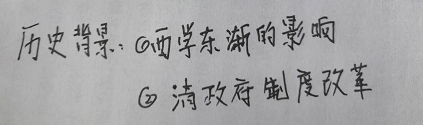 历史背景:①西学东渐的影响
②清政府制度改革